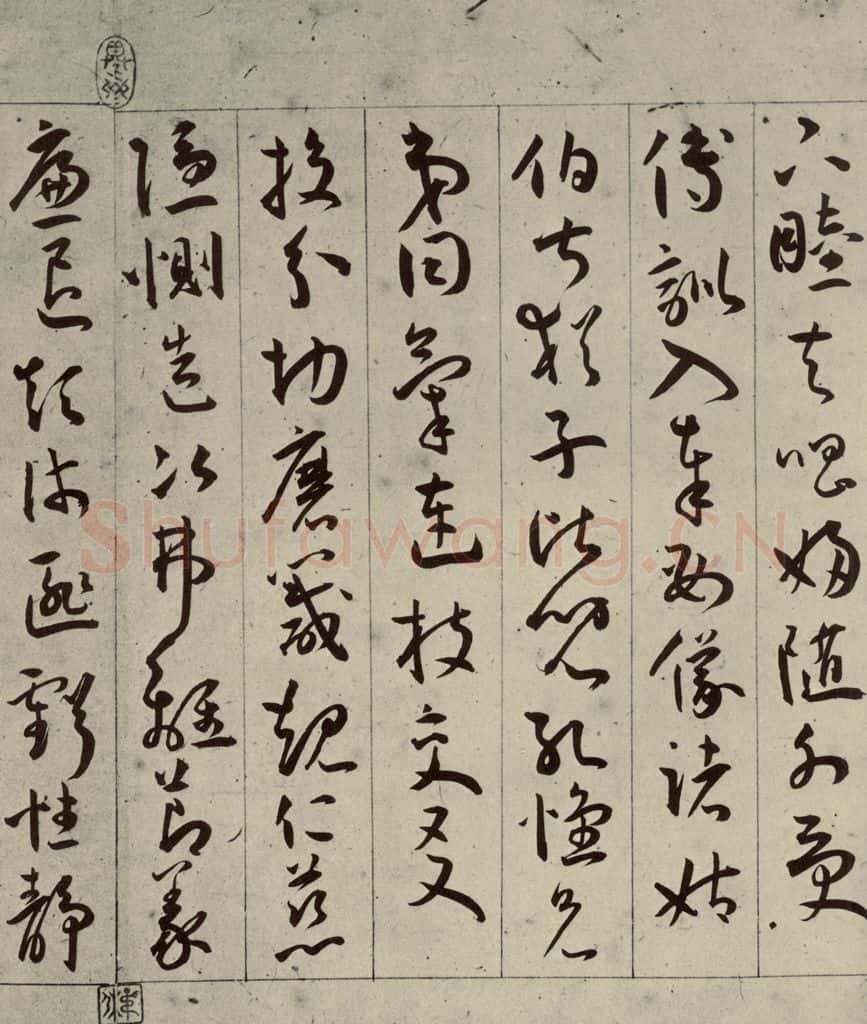 下睦夫唱婦隨外受
傅訓入奉母儀諸姑
伯叔猶子比兒孔懷兄
弟同氣連枝交友
投分切磨箴規仁慈
隱惻造次弗離節義
廉退顛沛匪虧性靜
Shufawang.CN